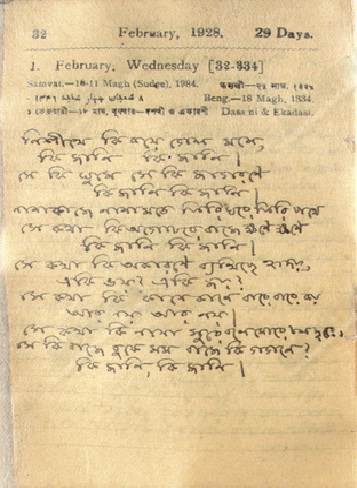 32 February, 1928. 29 Days.
1. February, Wednesday [32-334]
Samvat.—10-11 Magh (Sudee), 1984.
Beng.—18 Magh, 1334.
Dasami & Ekadasi.
নিশীথে কি কয়ে গেল মনে,
কি জানি কি জানি।
সে কি ঘুমে সে কি জাগরণে
কি জানি কি জানি।
নানাকাজে নানামতে ফিরি ঘরে, ফিরি পথে
সে কথা কি অগোচরে বাজে ক্ষণে ক্ষণে
কি জানি কি জানি।
সে কথা কি অকারণে ব্যথিছে হৃদয়,
একি ভয়? একি জয়?
সে কথা কি কানে কানে বারে বারে কয়
আর নয় আর নয়।
সে কথা কি নানা সুরে বলে মোরে চল দূরে,
সে কি বাজে বুকে মম বাজে কি গগনে?
কি জানি, কি জানি।